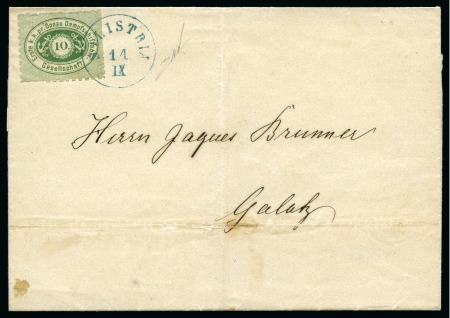 Erste k.k. pr. Donau Dampfschiffahrt
10.
Gesellschaft
14
IX
Herrn Jaques Brunner
Galatz